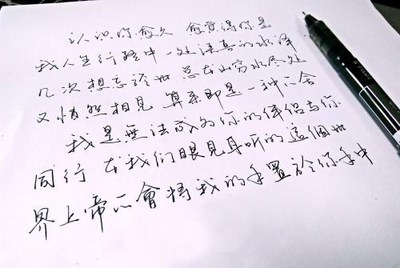 认识你愈久 愈觉得你是
我人生行路中一处清喜的水泽
几次想忘於世 总在山穷水尽处
又悄然相見 算来即是一种不舍
我是無法成为你的伴侣与你
同行 在我们眼見耳听的這個世
界上帝不會將我的手置於你手中